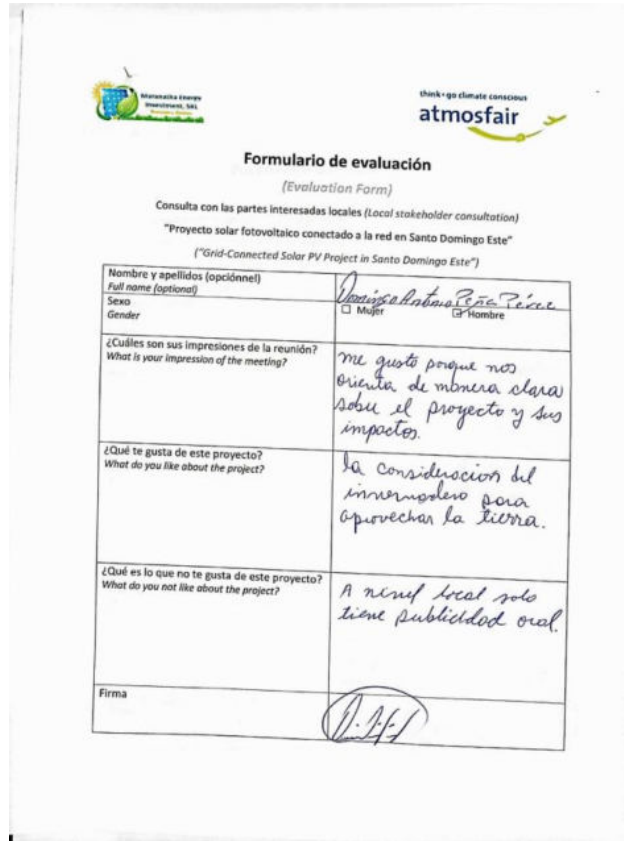 Maranatha Energy
Investment, SRL
think • go climate conscious
atmosfair
Formulario de evaluación
(Evaluation Form)
Consulta con las partes interesadas locales (Local stakeholder consultation)
"Proyecto solar fotovoltaico conectado a la red en Santo Domingo Este"
("Grid-Connected Solar PV Project in Santo Domingo Este")
Nombre y apellidos (opciónnel)
Full name (optional)
Domingo Antonio Peña Pérez
Sexo
Gender
Mujer
Hombre
¿Cuáles son sus impresiones de la reunión?
What is your impression of the meeting?
me gustó porque nos
orienta de manera clara
sobre el proyecto y sus
impactos.
¿Qué te gusta de este proyecto?
What do you like about the project?
la consideración del
invernadero para
aprovechar la tierra.
¿Qué es lo que no te gusta de este proyecto?
What do you not like about the project?
A nivel local solo
tiene publicidad oral.
Firma